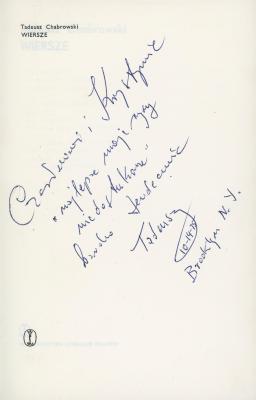 Tadeusz Chabrowski
WIERSZE
Czesławowi i Krystynie
"najlepsze moje rymy
niedostukane"
bardzo serdecznie
Tadeusz
Brooklyn N.Y.